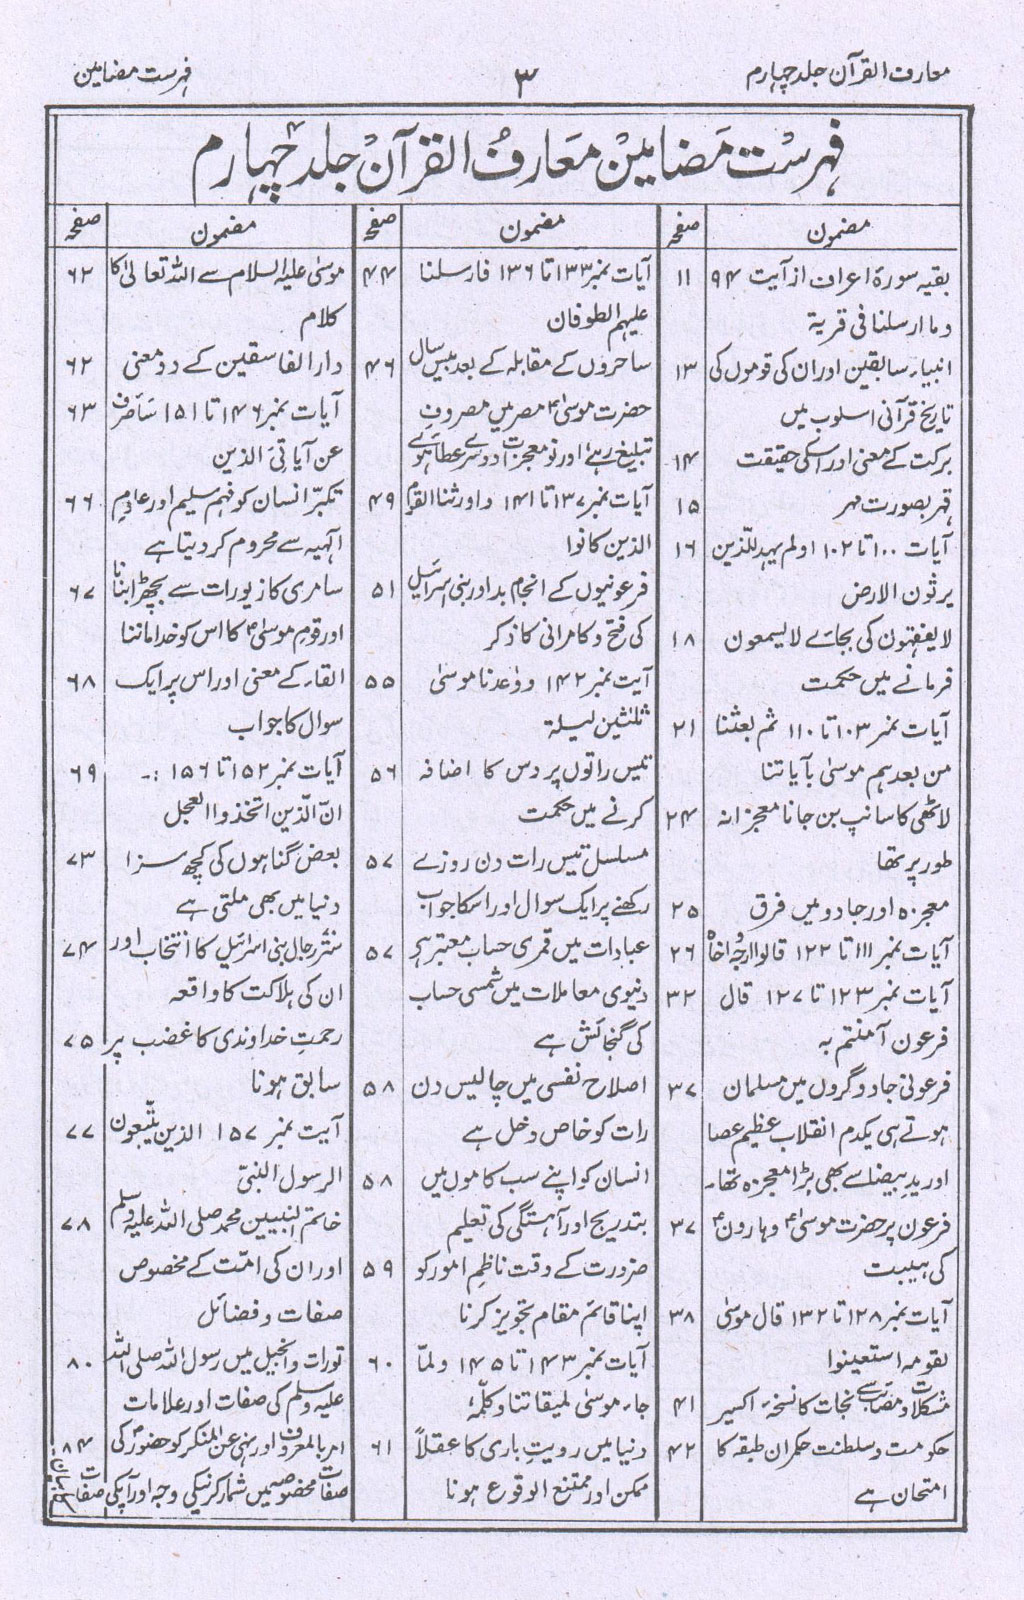 معارف القرآن جلد چہارم
۳
فہرست مضامین
فہرست مضامین معارف القرآن جلد چہارم
مضمون صفحہ
بقیہ سورۃ اعراف از آیت ۹۴ ۱۱
وما ارسلنا فی قریۃ
انبیاء سابقین اور ان کی قوموں کی ۱۳
تاریخ قرآنی اسلوب میں
برکت کے معنی اور اسکی حقیقت ۱۴
قہر بصورت مہر ۱۵
آیات ۱۰۰ تا ۱۰۲ اولم یہد للذین ۱۶
یرثون الارض
لا یفقہون کی بجائے لا یسمعون ۱۸
فرمانے میں حکمت
آیات نمبر ۱۰۳ تا ۱۱۰ ثم بعثنا ۲۱
من بعدہم موسیٰ بآیاتنا
لاٹھی کا سانپ بن جانا معجزانہ ۲۴
طور پر تھا
معجزہ اور جادو میں فرق ۲۵
آیات نمبر ۱۱۱ تا ۱۲۲ قالوا ارجہ اخاہ ۲۶
آیات نمبر ۱۲۳ تا ۱۲۷ قال ۳۲
فرعون آمنتم بہ
فرعونی جادوگروں میں مسلمان ۳۷
ہوتے ہی یکدم انقلاب عظیم عصا
اور ید بیضا سے بھی بڑا معجزہ تھا۔
فرعون پر حضرت موسیٰؑ و ہارونؑ ۳۷
کی ہیبت
آیات نمبر ۱۲۸ تا ۱۳۲ قال موسیٰ ۳۸
لقومہ استعینوا
مشکلات و مصائب سے نجات کا نسخہ اکسیر ۴۱
حکومت و سلطنت حکمران طبقہ کا ۴۲
امتحان ہے
مضمون صفحہ
آیات نمبر ۱۳۳ تا ۱۳۶ فارسلنا ۴۴
علیہم الطوفان
ساحروں کے مقابلہ کے بعد بیس سال ۴۶
حضرت موسیٰؑ مصر میں مصروف
تبلیغ رہے اور نو معجزات دوسرے عطا ہوئے
آیات نمبر ۱۳۷ تا ۱۴۱ واورثنا القوم ۴۹
الذین کانوا
فرعونیوں کے انجام بد اور بنی اسرائیل ۵۱
کی فتح و کامرانی کا ذکر
آیت نمبر ۱۴۲ ووٰعدنا موسیٰ ۵۵
ثلثین لیلۃ
تیس راتوں پر دس کا اضافہ ۵۶
کرنے میں حکمت
مسلسل تیس رات دن روزے ۵۷
رکھنے پر ایک سوال اور اسکا جواب
عبادات میں قمری حساب معتبر ہے ۵۷
دنیوی معاملات میں شمسی حساب
کی گنجائش ہے
اصلاح نفسی میں چالیس دن ۵۸
رات کو خاص دخل ہے
انسان کو اپنے سب کاموں میں ۵۸
بتدریج اور آہستگی کی تعلیم
ضرورت کے وقت ناظم امور کو ۵۹
اپنا قائم مقام تجویز کرنا
آیات نمبر ۱۴۳ تا ۱۴۵ ولمّا ۶۰
جاء موسیٰ لمیقاتنا وکلّمہٗ
دنیا میں رویت باری کا عقلاً ۶۱
ممکن اور ممتنع الوقوع ہونا
مضمون صفحہ
موسیٰ علیہ السلام سے اللہ تعالیٰ کا ۶۲
کلام
دار الفاسقین کے دو معنی ۶۲
آیات نمبر ۱۴۶ تا ۱۵۱ ساصرف ۶۳
عن آیاتی الذین
تکبر انسان کو فہم سلیم اور علوم ۶۶
الٰہیہ سے محروم کر دیتا ہے
سامری کا زیورات سے بچھڑا بنانا ۶۷
اور قوم موسیٰؑ کا اس کو خدا ماننا
القاء کے معنی اور اس پر ایک ۶۸
سوال کا جواب
آیات نمبر ۱۵۲ تا ۱۵۶ :۔ ۶۹
انّ الّذین اتخذوا العجل
بعض گناہوں کی کچھ سزا ۷۳
دنیا میں بھی ملتی ہے
ستّر رجال بنی اسرائیل کا انتخاب اور ۷۴
ان کی ہلاکت کا واقعہ
رحمتِ خداوندی کا غضب پر ۷۵
سابق ہونا
آیت نمبر ۱۵۷ الذین یتّبعون ۷۷
الرسول النبیّ
خاتم النبیین محمد صلی اللہ علیہ وسلم ۷۸
اور ان کی امّت کے مخصوص
صفات و فضائل
تورات و انجیل میں رسول اللہ صلی اللہ ۸۰
علیہ وسلم کی صفات اور علامات
امر بالمعروف اور نہی عن المنکر کو حضورؐ کی ۸۴
صفات مخصوصہ میں شمار کرنیکی وجہ اور آپکی صفات